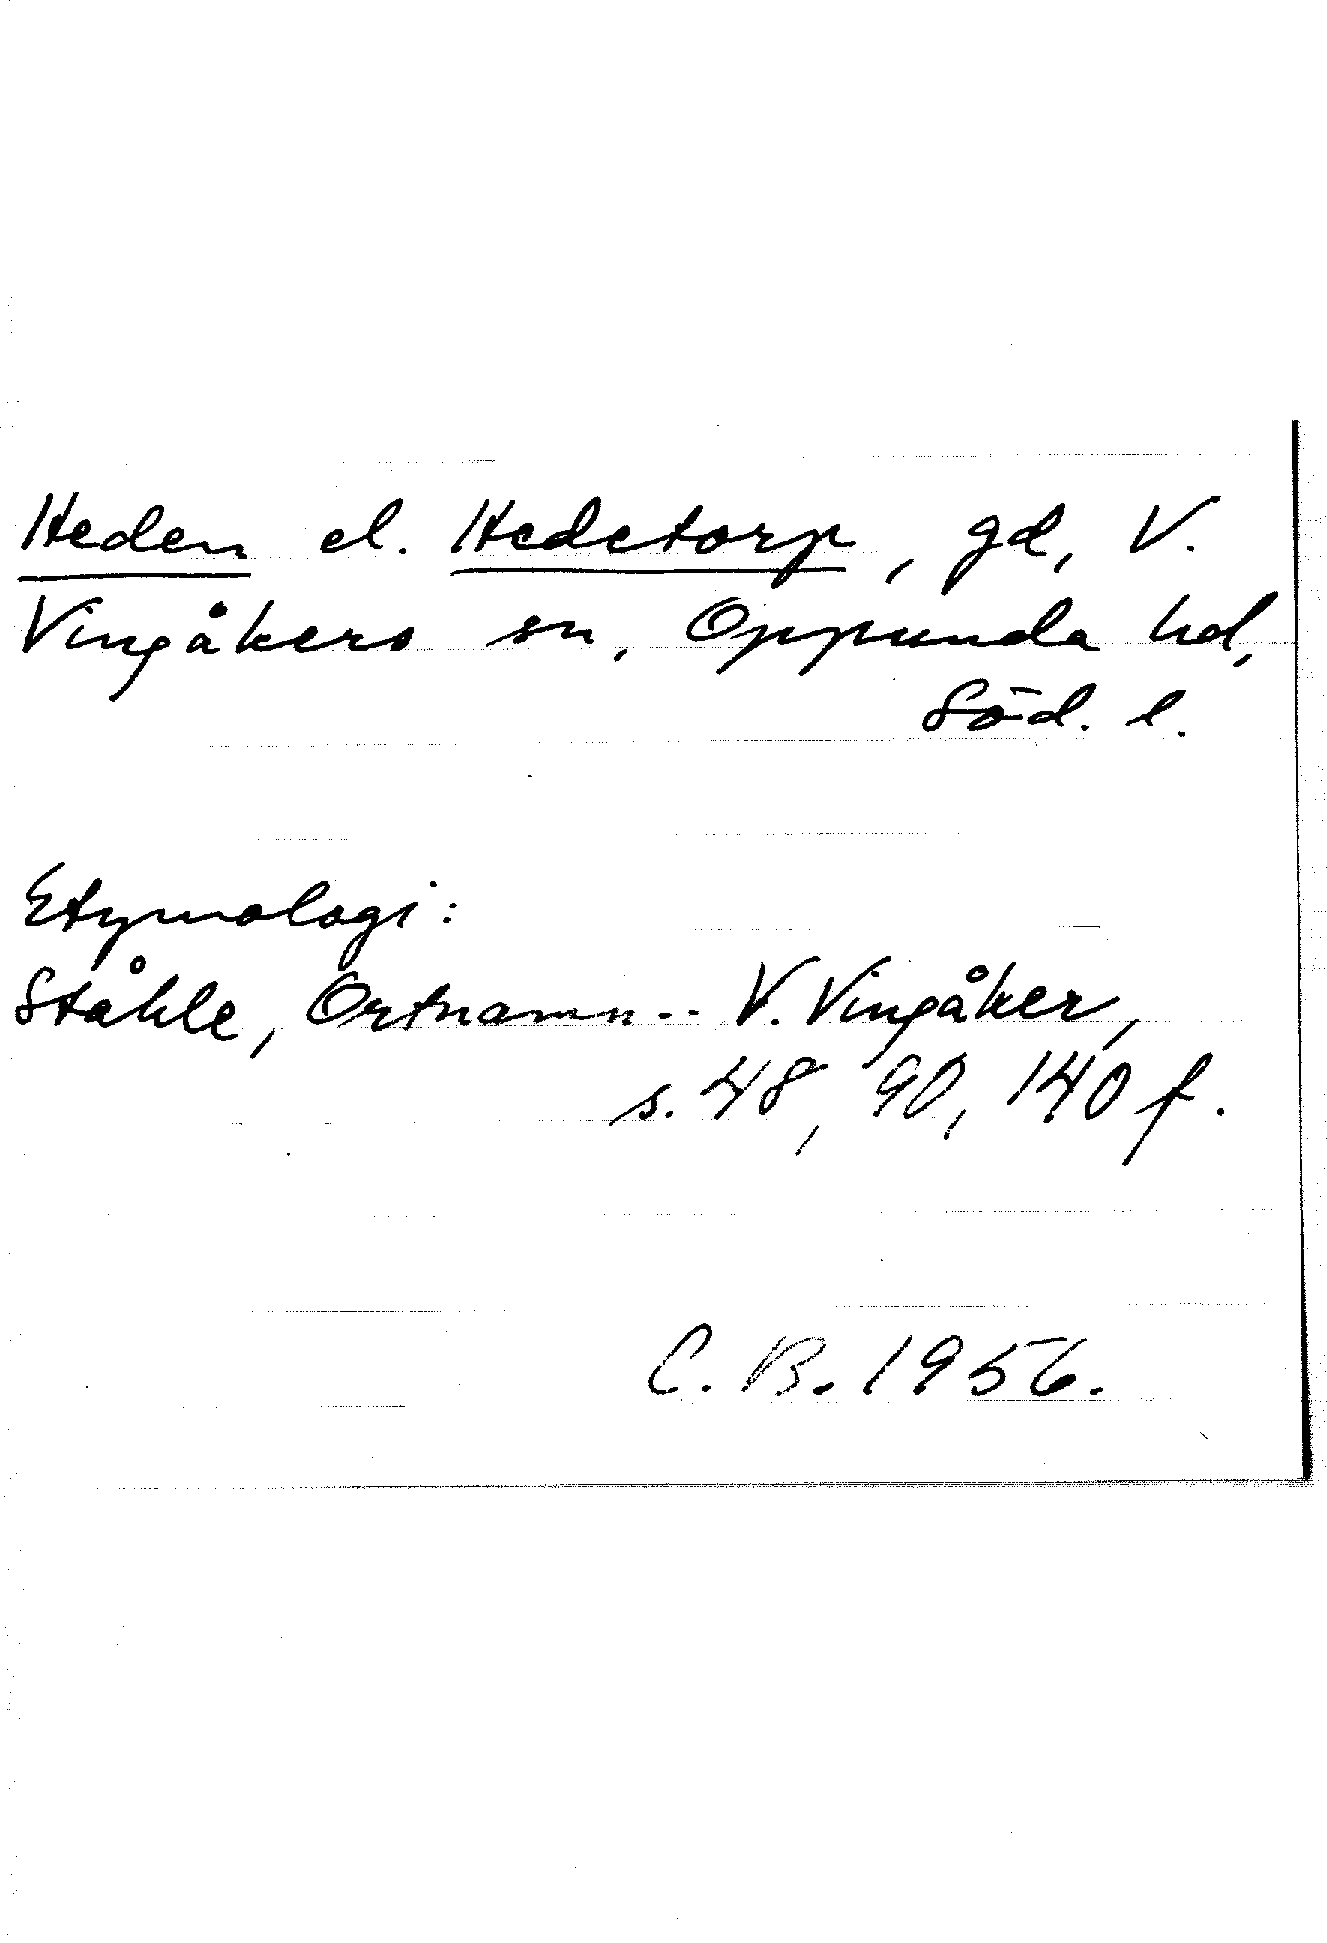 Heden el. Hedetorp, gd, V.
Vingåkers sn, Oppunda hd,
Söd. l.
Etymologi:
Ståhle, Ortnamn -- V. Vingåker,
s. 48, 90, 140 f.
C. B. 1956.